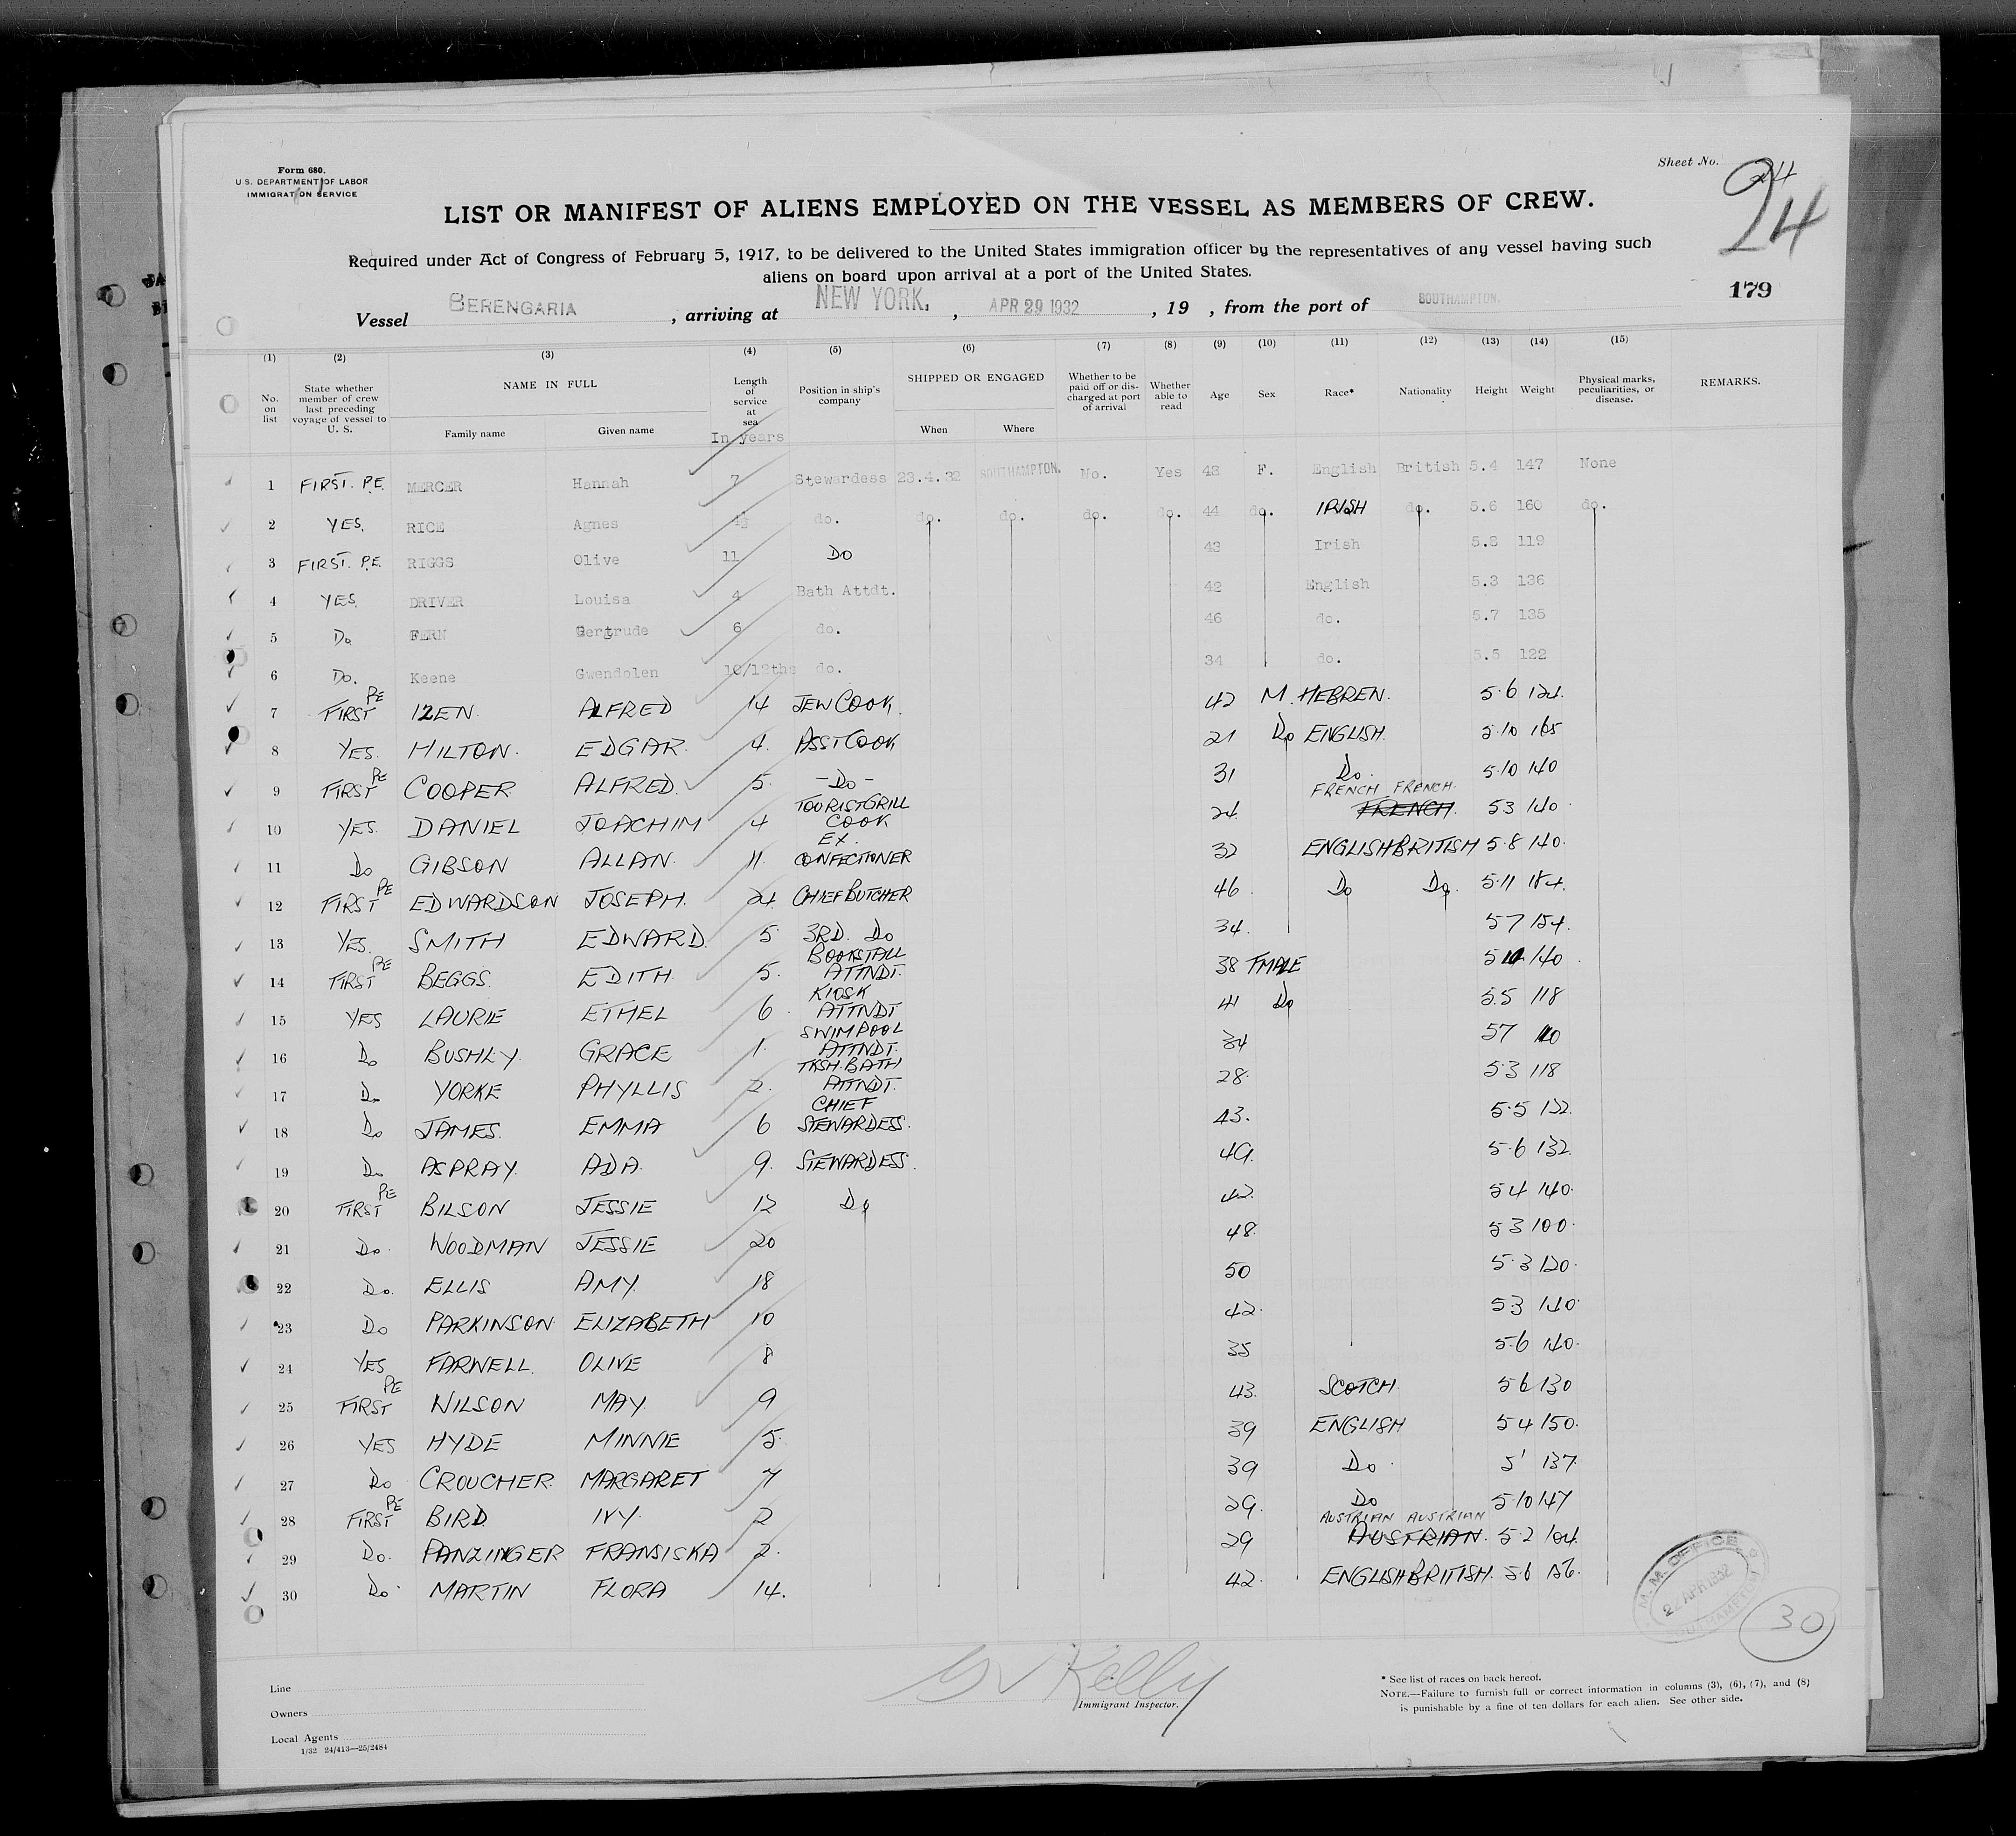 Form 680.
U.S. DEPARTMENT OF LABOR
IMMIGRATION SERVICE
Sheet No. 24
24
LIST OR MANIFEST OF ALIENS EMPLOYED ON THE VESSEL AS MEMBERS OF CREW.
Required under Act of Congress of February 5, 1917, to be delivered to the United States immigration officer by the representatives of any vessel having such
aliens on board upon arrival at a port of the United States.
179
Vessel BERENGARIA, arriving at NEW YORK, APR 29 1932, 19 , from the port of SOUTHAMPTON.
(1) (2) (3) (4) (5) (6) (7) (8) (9) (10) (11) (12) (13) (14) (15)
No. on list State whether member of crew last preceding voyage of vessel to U. S. NAME IN FULL Family name Given name Length of service at sea In years Position in ship's company SHIPPED OR ENGAGED When Where Whether to be paid off or discharged at port of arrival Whether able to read Age Sex Race* Nationality Height Weight Physical marks, peculiarities, or disease. REMARKS.
1 FIRST. P.E. MERCER Hannah 7 Stewardess 23.4.32 SOUTHAMPTON. No. Yes 43 F. English British 5.4 147 None
2 YES. RICE Agnes do. do. do. do. do. 44 do. IRISH do. 5.6 160 do.
3 FIRST. P.E. RIGGS Olive 11 DO 43 Irish 5.8 119
4 YES. DRIVER Louisa 4 Bath Attdt. 42 English 5.3 136
5 Do FERN Gertrude 6 do. 46 do. 5.7 135
6 Do. Keene Gwendolen 10/12ths do. 34 do. 5.5 122
7 FIRST PE IZEN. ALFRED 14 JEW COOK. 42 M. HEBREW. 5.6 124.
8 YES. HILTON. EDGAR. 4. ASST COOK 21 Do ENGLISH. 5.10 165
9 FIRST PE COOPER ALFRED. 5. -Do- 31 Do. 5.10 140
10 YES. DANIEL JOACHIM 4 TOURIST GRILL COOK 24. FRENCH FRENCH. FRENCH. 53 140.
11 Do GIBSON ALLAN. 11. EX. CONFECTIONER 32 ENGLISH BRITISH 5.8 140.
12 FIRST PE EDWARDSON JOSEPH. 24. CHIEF BUTCHER 46. Do Do. 5.11 184.
13 YES. SMITH EDWARD. 5. 3RD. Do 34. 57 154.
14 FIRST PE BEGGS. EDITH. 5. BOOKSTALL ATTNDT. 38 FMALE 140.
15 YES LAURIE ETHEL 6. KIOSK ATTNDT 41 Do 5.5 118
16 Do BUSHLY. GRACE 1. SWIM POOL ATTNDT. 34 57
17 Do YORKE PHYLLIS 2. TKSH. BATH ATTNDT. 28. 5.3 118
18 Do JAMES. EMMA 6 CHIEF STEWARDESS. 43. 5.5 122.
19 Do ASPRAY. ADA. 9. STEWARDESS. 49. 5.6 132.
20 FIRST PE BILSON JESSIE 12 Do 42. 54 140.
21 Do. WOODMAN JESSIE 20 48. 53 100.
22 Do. ELLIS AMY. 18 50 5.3 120.
23 Do PARKINSON ELIZABETH 10 42. 53 140.
24 YES FARWELL. OLIVE 8 35 5.6 140.
25 FIRST PE WILSON MAY. 9 43. SCOTCH. 56 130
26 YES HYDE MINNIE 5. 39 ENGLISH 54 150.
27 Do CROUCHER. MARGARET 7 39 Do. 5' 137
28 FIRST PE BIRD. IVY. 2 29. Do 5.10 147
29 Do. PANZINGER FRANSISKA 2. 29 AUSTRIAN AUSTRIAN AUSTRIAN. 5.2 104.
30 Do. MARTIN FLORA 14. 42. ENGLISH BRITISH. 5.6 126.
M.M. OFFICE
22 APR 1932
SOUTHAMPTON
30
Line
Owners
Local Agents
1/32 24/413—25/2484
Kelly
Immigrant Inspector.
* See list of races on back hereof.
NOTE.—Failure to furnish full or correct information in columns (3), (6), (7), and (8)
is punishable by a fine of ten dollars for each alien. See other side.